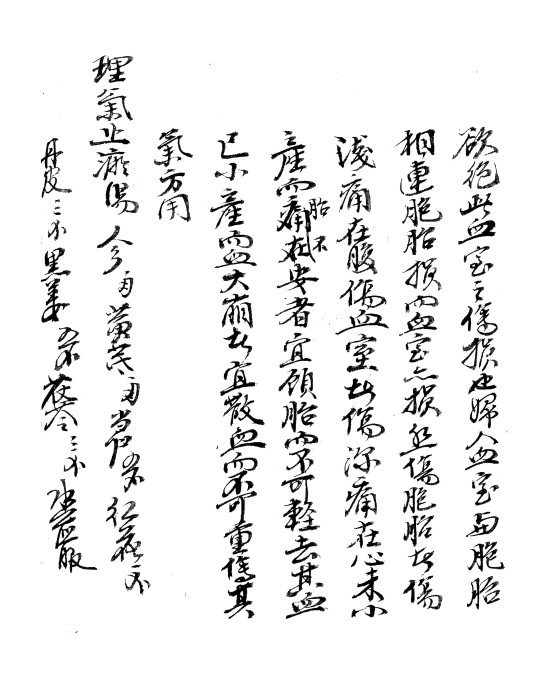 欲絕此血室之傷損也婦人血室与胞胎
相連胞胎損而血室亦損然傷胞胎者傷
淺痛在腹傷血室者傷深痛在心未小
產而痛在胎不安者宜顧胎而不可輕去其血
已小產而血大崩者宜散血而不可重傷其
氣方用
理氣止瘀湯 人參 黃芪 当归 红花
丹皮三 黑姜 茯苓三 水煎服